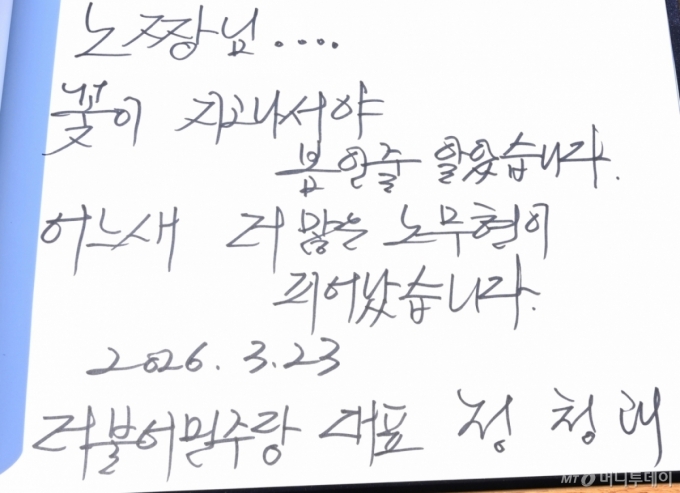 노짱님....
꽃이 지고나서야
봄인줄 알았습니다.
어느새 더 많은 노무현이
피어났습니다.
2026. 3. 23
더불어민주당 대표 정청래
MT 머니투데이